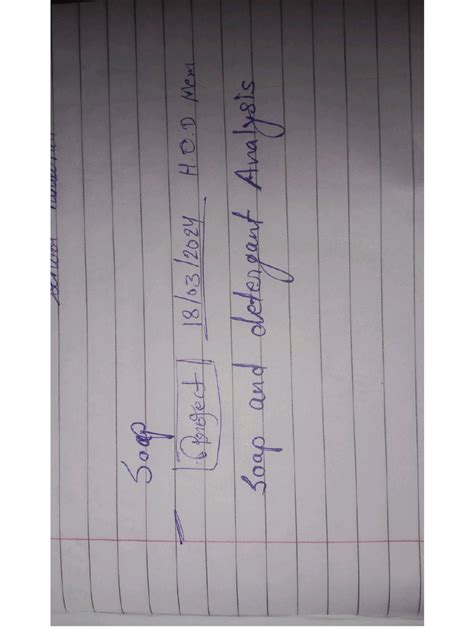 Soap
Project 18/03/2024 H.O.D Mem
Soap and detergant Analysis